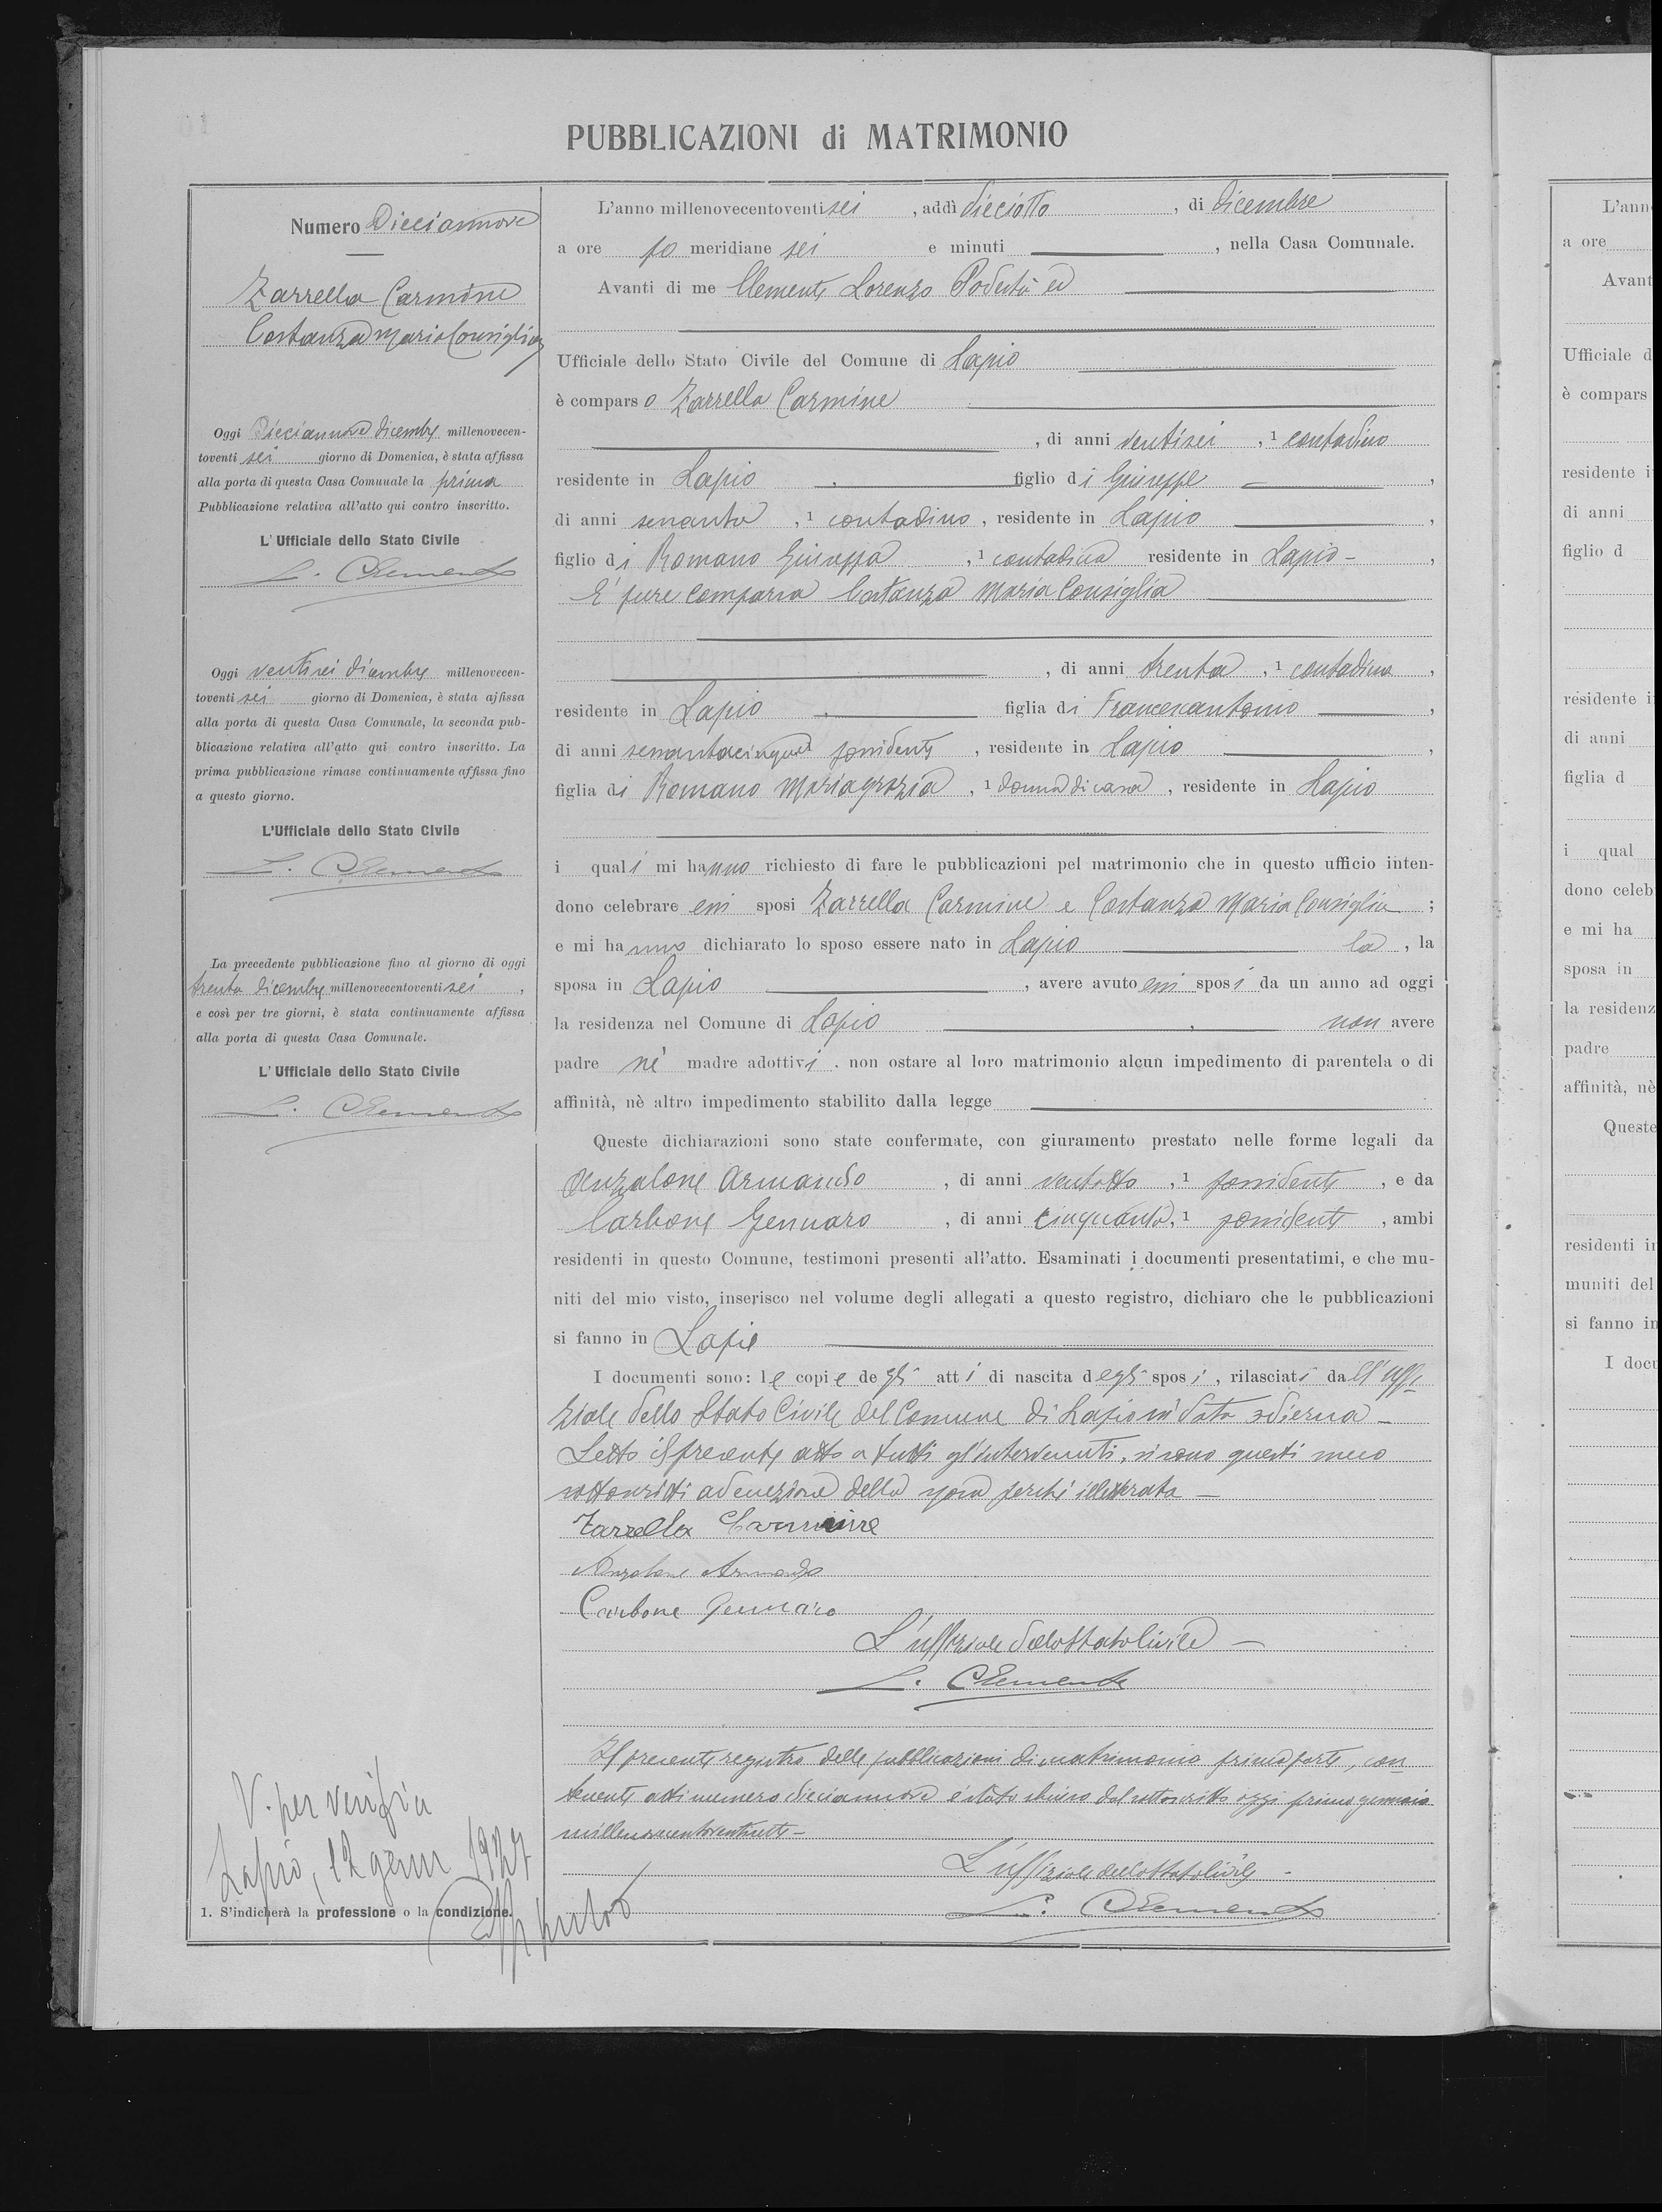 PUBBLICAZIONI di MATRIMONIO
Numero Dieciannove
Zarrella Carmine
Costanza Maria Consiglia
Oggi Dieciannove dicembre millenovecen-
toventi sei giorno di Domenica, è stata affissa
alla porta di questa Casa Comunale la prima
Pubblicazione relativa all'atto qui contro inscritto.
L'Ufficiale dello Stato Civile
L. Clemente
Oggi ventisei dicembre millenovecen-
toventi sei giorno di Domenica, è stata affissa
alla porta di questa Casa Comunale, la seconda pub-
blicazione relativa all'atto qui contro inscritto. La
prima pubblicazione rimase continuamente affissa fino
a questo giorno.
L'Ufficiale dello Stato Civile
L. Clemente
La precedente pubblicazione fino al giorno di oggi
trenta dicembre millenovecentoventi sei ,
e così per tre giorni, è stata continuamente affissa
alla porta di questa Casa Comunale.
L'Ufficiale dello Stato Civile
L. Clemente
V. per verifica
Lapio, 12 genn 1927
1. S'indicherà la professione o la condizione.
L'anno millenovecentoventi sei , addì dieciotto , di dicembre
a ore po meridiane sei e minuti , nella Casa Comunale.
Avanti di me Clemente Lorenzo Podestà ed
Ufficiale dello Stato Civile del Comune di Lapio
è compars o Zarrella Carmine
, di anni ventisei , 1 contadino
residente in Lapio figlio di Giuseppe ,
di anni sessanta , 1 contadino , residente in Lapio ,
figlio di Romano Giuseppa , 1 contadina residente in Lapio - ,
E' pure comparsa Costanza Maria Consiglia
, di anni trenta , 1 contadina ,
residente in Lapio figlia di Francescantonio ,
di anni sessantacinque possidente , residente in Lapio ,
figlia di Romano Mariagrazia , 1 donna di casa , residente in Lapio
i quali mi hanno richiesto di fare le pubblicazioni pel matrimonio che in questo ufficio inten-
dono celebrare essi sposi Zarrella Carmine e Costanza Maria Consiglia ;
e mi hanno dichiarato lo sposo essere nato in Lapio la , la
sposa in Lapio , avere avuto essi sposi da un anno ad oggi
la residenza nel Comune di Lapio non avere
padre nè madre adottivi . non ostare al loro matrimonio alcun impedimento di parentela o di
affinità, nè altro impedimento stabilito dalla legge
Queste dichiarazioni sono state confermate, con giuramento prestato nelle forme legali da
Anzalone Armando , di anni ventotto , 1 possidente , e da
Carbone Gennaro , di anni cinquanta , 1 possidente , ambi
residenti in questo Comune, testimoni presenti all'atto. Esaminati i documenti presentatimi, e che mu-
niti del mio visto, inserisco nel volume degli allegati a questo registro, dichiaro che le pubblicazioni
si fanno in Lapio
I documenti sono: le copie degli atti di nascita degli sposi , rilasciati dall'uffi-
ziale dello Stato Civile del Comune di Lapio in data odierna -
Letto il presente atto a tutti gl'intervenuti, si sono questi meco
sottoscritti ad eccezione della sposa perchè illetterata -
Zarrella Carmine
Anzalone Armando
Carbone Gennaro
L'uffiziale dello Stato Civile -
L. Clemente
Il presente registro delle pubblicazioni di matrimonio prima parte, con-
tenente atti numero dieciannove è stato chiuso dal sottoscritto oggi primo gennaio
millenovecentoventisette -
L'uffiziale dello Stato Civile -
L. Clemente
L'ann
a ore
Avant
Ufficiale d
è compars
residente i
di anni
figlio d
residente i
di anni
figlia d
i qual
dono celeb
e mi ha
sposa in
la residenz
padre
affinità, nè
Queste
residenti in
muniti del
si fanno in
I docu